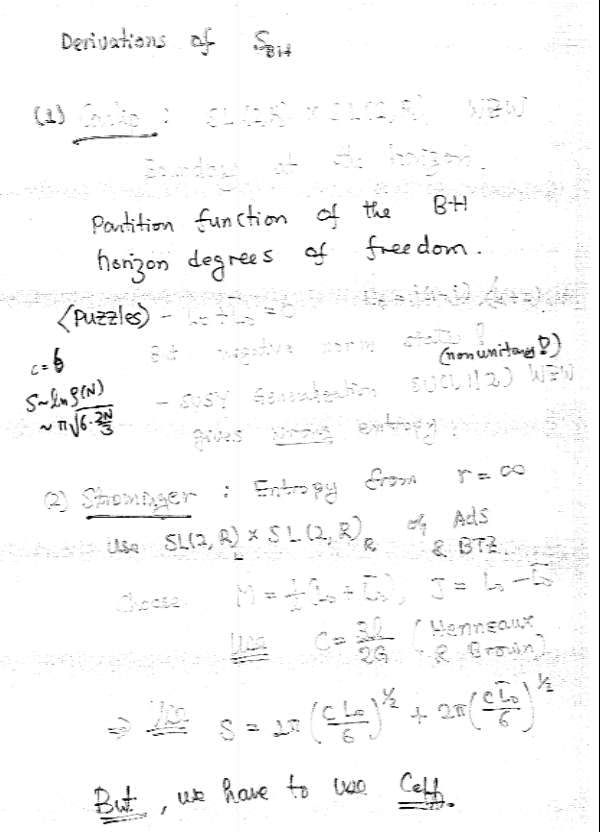 Derivations of S_BH
(1) Carlip : SL(2,R) × SL(2,R) WZW
Boundary at the horizon.
Partition function of the BH
horizon degrees of freedom.
(Puzzles) - L₀ + L̄₀ = 0
But negative norm states! (nonunitary!)
c = 6
S ~ ln ρ(N)
~ π√(6·2N/3)
- SUSY Generalization SU(1,1|2) WZW
gives wrong entropy
(2) Strominger : Entropy from r = ∞
Use SL(2,R)_L × SL(2,R)_R of AdS & BTZ
Choose M = 1/l (L₀ + L̄₀), J = L₀ - L̄₀
Use C = 3l/2G (Henneaux & Brown)
⇒ S = 2π (cL₀/6)^½ + 2π (cL̄₀/6)^½
But, we have to use Ceff.